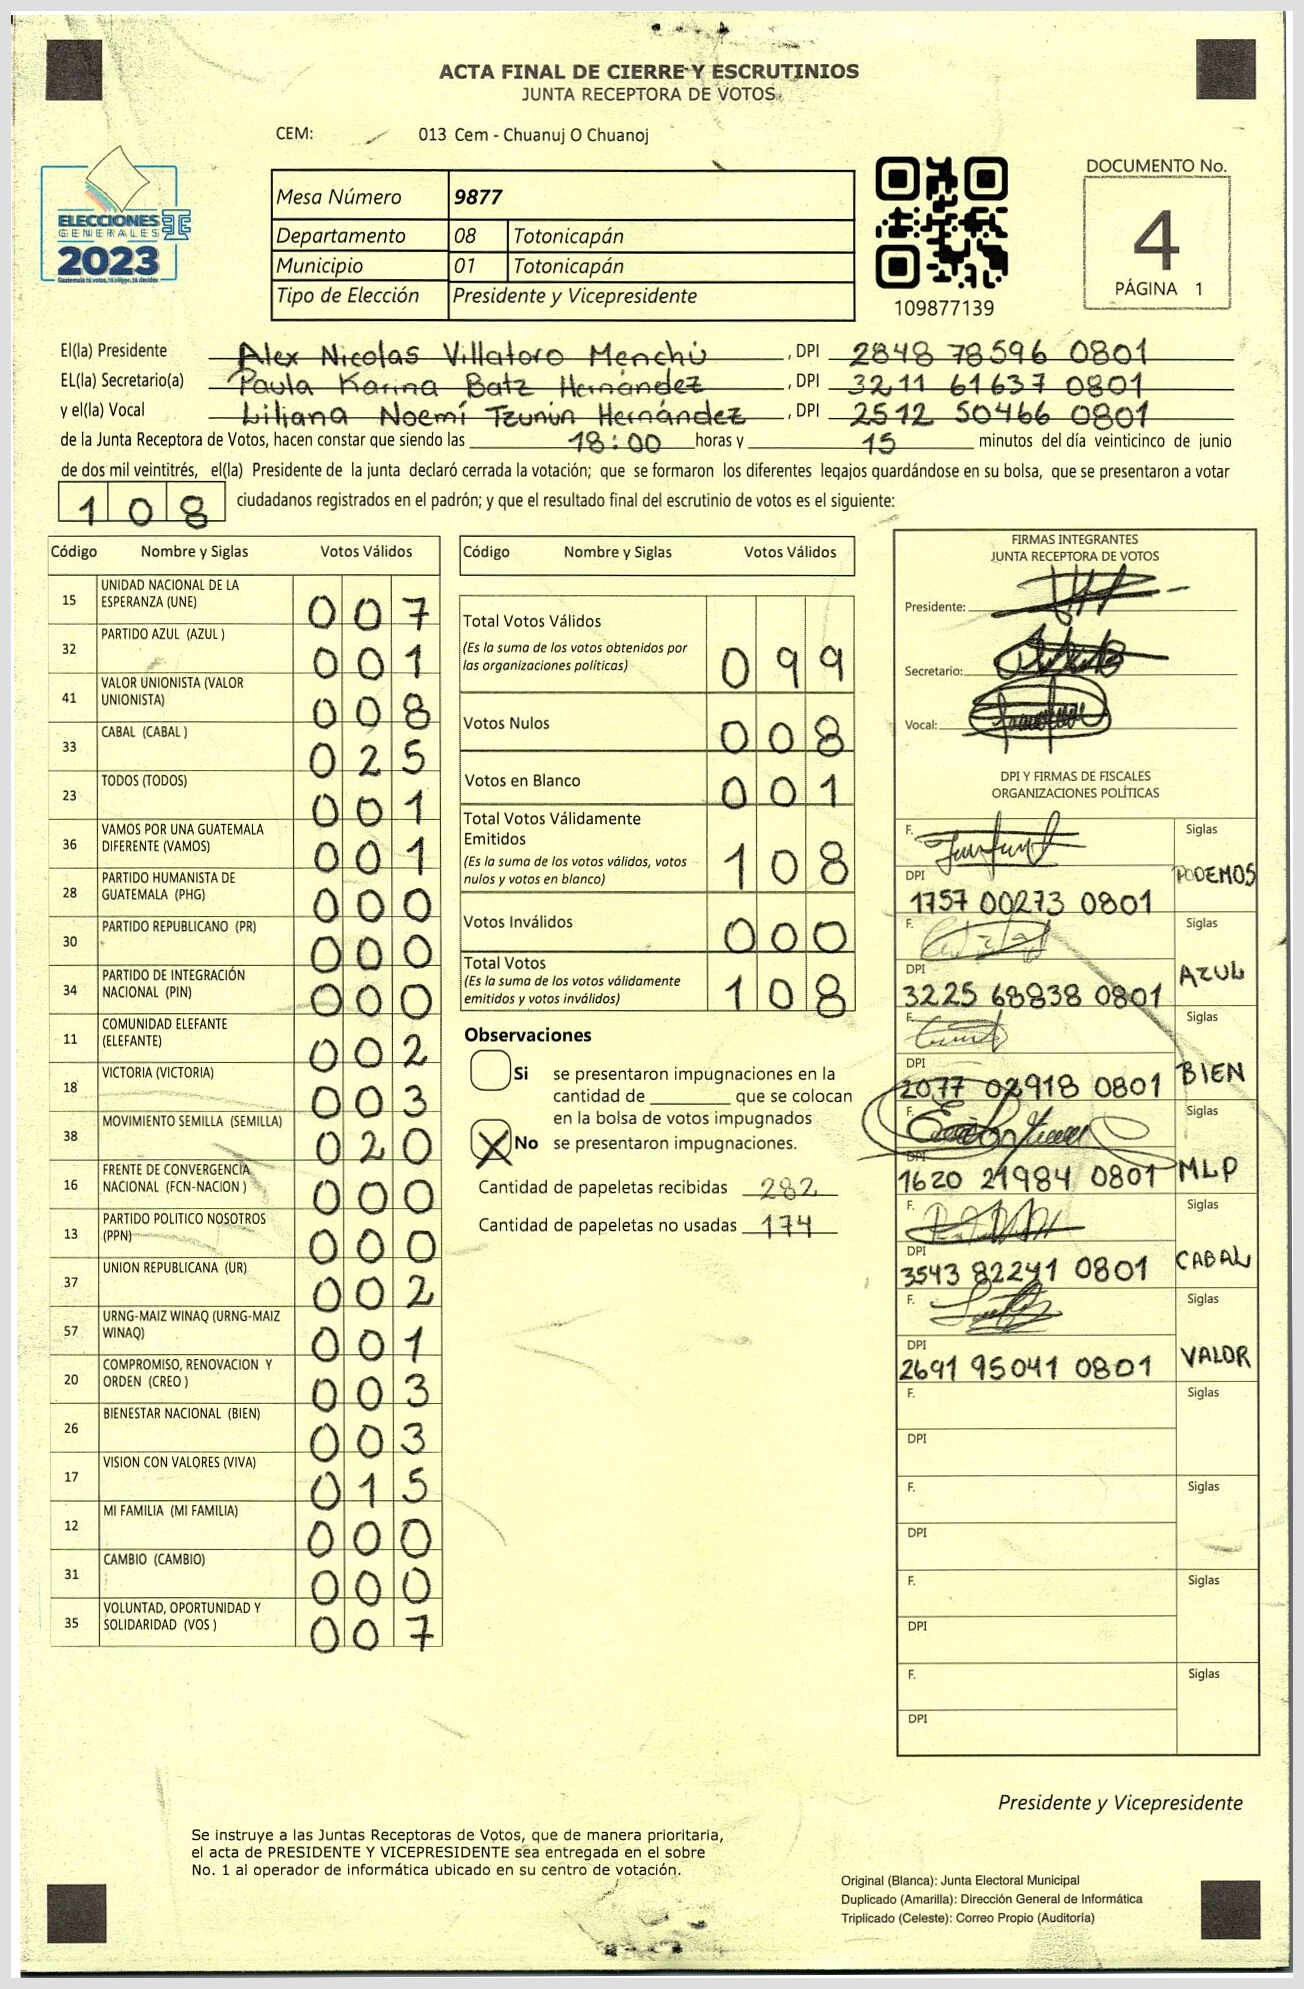 ACTA FINAL DE CIERRE Y ESCRUTINIOS
JUNTA RECEPTORA DE VOTOS
CEM: 013 Cem - Chuanuj O Chuanoj
ELECCIONES
GENERALES
2023
Mesa Número 9877
Departamento 08 Totonicapán
Municipio 01 Totonicapán
Tipo de Elección Presidente y Vicepresidente
109877139
DOCUMENTO No.
4
PÁGINA 1
El(la) Presidente Alex Nicolas Villatoro Menchú , DPI 2848 78596 0801
EL(la) Secretario(a) Paula Karina Batz Hernández , DPI 3211 61637 0801
y el(la) Vocal Liliana Noemí Tzunún Hernández , DPI 2512 50466 0801
de la Junta Receptora de Votos, hacen constar que siendo las 18:00 horas y 15 minutos del día veinticinco de junio
de dos mil veintitrés, el(la) Presidente de la junta declaró cerrada la votación; que se formaron los diferentes legajos guardándose en su bolsa, que se presentaron a votar
108 ciudadanos registrados en el padrón; y que el resultado final del escrutinio de votos es el siguiente:
Código Nombre y Siglas Votos Válidos
15 UNIDAD NACIONAL DE LA ESPERANZA (UNE) 007
32 PARTIDO AZUL (AZUL ) 001
41 VALOR UNIONISTA (VALOR UNIONISTA) 008
33 CABAL (CABAL ) 025
23 TODOS (TODOS) 001
36 VAMOS POR UNA GUATEMALA DIFERENTE (VAMOS) 001
28 PARTIDO HUMANISTA DE GUATEMALA (PHG) 000
30 PARTIDO REPUBLICANO (PR) 000
34 PARTIDO DE INTEGRACIÓN NACIONAL (PIN) 000
11 COMUNIDAD ELEFANTE (ELEFANTE) 002
18 VICTORIA (VICTORIA) 003
38 MOVIMIENTO SEMILLA (SEMILLA) 020
16 FRENTE DE CONVERGENCIA NACIONAL (FCN-NACION ) 000
13 PARTIDO POLITICO NOSOTROS (PPN) 000
37 UNION REPUBLICANA (UR) 002
57 URNG-MAIZ WINAQ (URNG-MAIZ WINAQ) 001
20 COMPROMISO, RENOVACION Y ORDEN (CREO ) 003
26 BIENESTAR NACIONAL (BIEN) 003
17 VISION CON VALORES (VIVA) 015
12 MI FAMILIA (MI FAMILIA) 000
31 CAMBIO (CAMBIO) 000
35 VOLUNTAD, OPORTUNIDAD Y SOLIDARIDAD (VOS ) 007
Código Nombre y Siglas Votos Válidos
Total Votos Válidos 099
(Es la suma de los votos obtenidos por
las organizaciones politicas)
Votos Nulos 008
Votos en Blanco 001
Total Votos Válidamente
Emitidos 108
(Es la suma de los votos válidos, votos
nulos y votos en blanco)
Votos Inválidos 000
Total Votos 108
(Es la suma de los votos válidamente
emitidos y votos inválidos)
Observaciones
Si se presentaron impugnaciones en la
cantidad de ________ que se colocan
en la bolsa de votos impugnados
X No se presentaron impugnaciones.
Cantidad de papeletas recibidas 282
Cantidad de papeletas no usadas 174
FIRMAS INTEGRANTES
JUNTA RECEPTORA DE VOTOS
Presidente:
Secretario:
Vocal:
DPI Y FIRMAS DE FISCALES
ORGANIZACIONES POLÍTICAS
F. Siglas
PODEMOS
DPI
1757 00273 0801
F. Siglas
AZUL
DPI
3225 68838 0801
F. Siglas
BIEN
DPI
2077 02918 0801
F. Siglas
MLP
DPI
1620 21984 0801
F. Siglas
CABAL
DPI
3543 82241 0801
F. Siglas
VALOR
DPI
2691 95041 0801
F. Siglas
DPI
F. Siglas
DPI
F. Siglas
DPI
F. Siglas
DPI
Presidente y Vicepresidente
Se instruye a las Juntas Receptoras de Votos, que de manera prioritaria,
el acta de PRESIDENTE Y VICEPRESIDENTE sea entregada en el sobre
No. 1 al operador de informática ubicado en su centro de votación.
Original (Blanca): Junta Electoral Municipal
Duplicado (Amarilla): Dirección General de Informática
Triplicado (Celeste): Correo Propio (Auditoría)